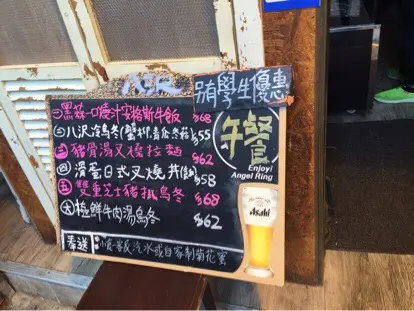 另有學生優惠
午餐
㊀黑蒜一口燒汁安格斯牛飯 $68
㊁八爪冷烏冬(蟹柳,青瓜,冬菇) $55
㊂豬骨湯叉燒拉麵 $62
㊃滑蛋日式叉燒丼 $58
㊄雙重芝士豬扒烏冬 $68
㊅極鮮牛肉湯烏冬 $62
Enjoy!
Angel Ring
Asahi
奉送:小食、餐飯汽水或自家制菊花蜜